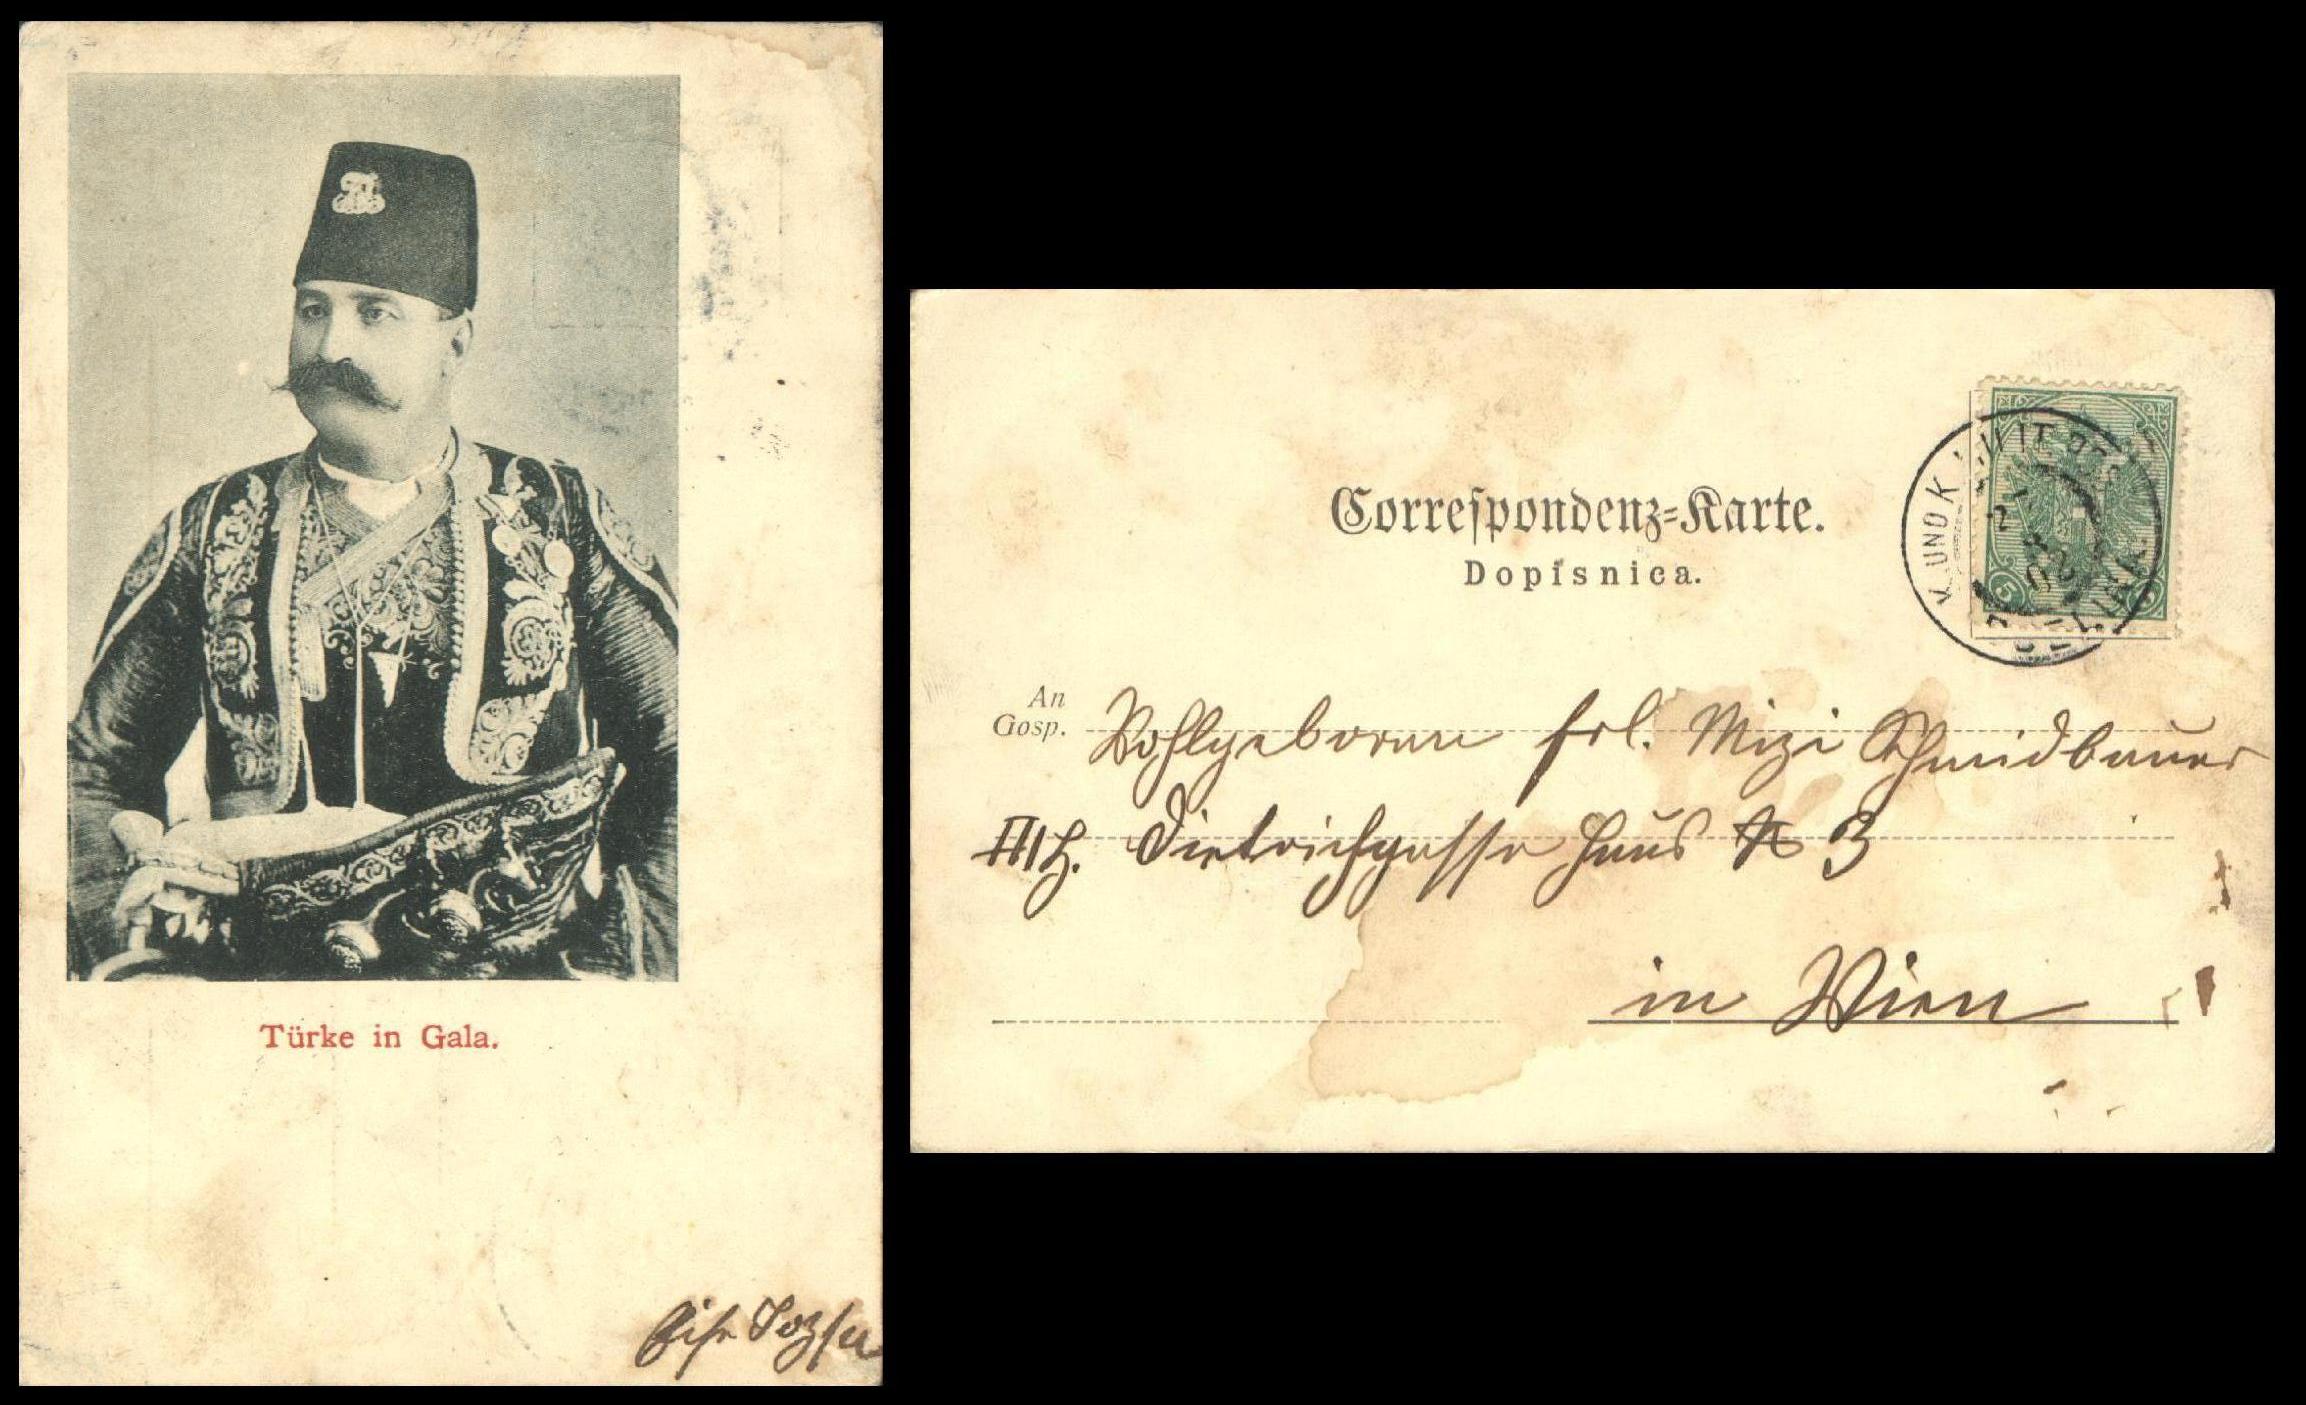 Türke in Gala.
Correspondenz-Karte.
Dopisnica.
K. UND K. MILIT. POST
5
An
Gosp.
Wohlgeboren Frl. Mizi Schmidbauer
III Bz. Dietrichgasse Haus N 3
in Wien